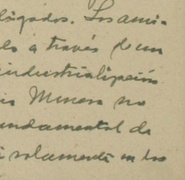 ógados. Los ami
do a través de un
industrialización
Minera no
undamental de
solamente en los